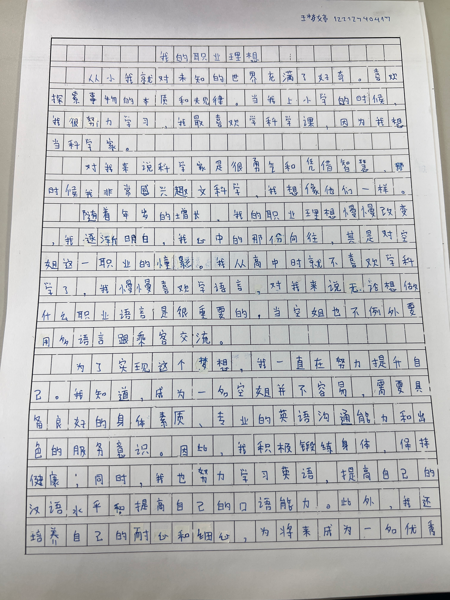 12212740417
我的职业理想
从小我就对未知的世界充满了好奇。喜欢
探索事物的本质和规律。当我上小学的时候,
我很努力学习,我最喜欢学科学课,因为我想
当科学家。
对我来说科学家是很勇气和凭借智慧,那
时候我非常感兴趣文科学,我想像他们一样。
随着年出的增长,我的职业理想慢慢改变
,我逐渐明白,我心中的那份向往,其是对空
姐这一职业的憧憬。我从高中时就不喜欢学科
学了。我慢慢喜欢学语言,对我来说无论想做
什么职业语言是很重要的。当空姐也不例外要
用多语言跟乘客交流。
为了实现这个梦想,我一直在努力提升自
己。我知道,成为一名空姐并不容易,需要具
备良好的身体素质、专业的英语沟通能力和出
色的服务意识。因此,我积极锻练身体,保持
健康;同时,我也努力学习英语,提高自己的
汉语水平和提高自己的口语能力。此外,我还
培养自己的耐心和细心,为将来成为一名优秀